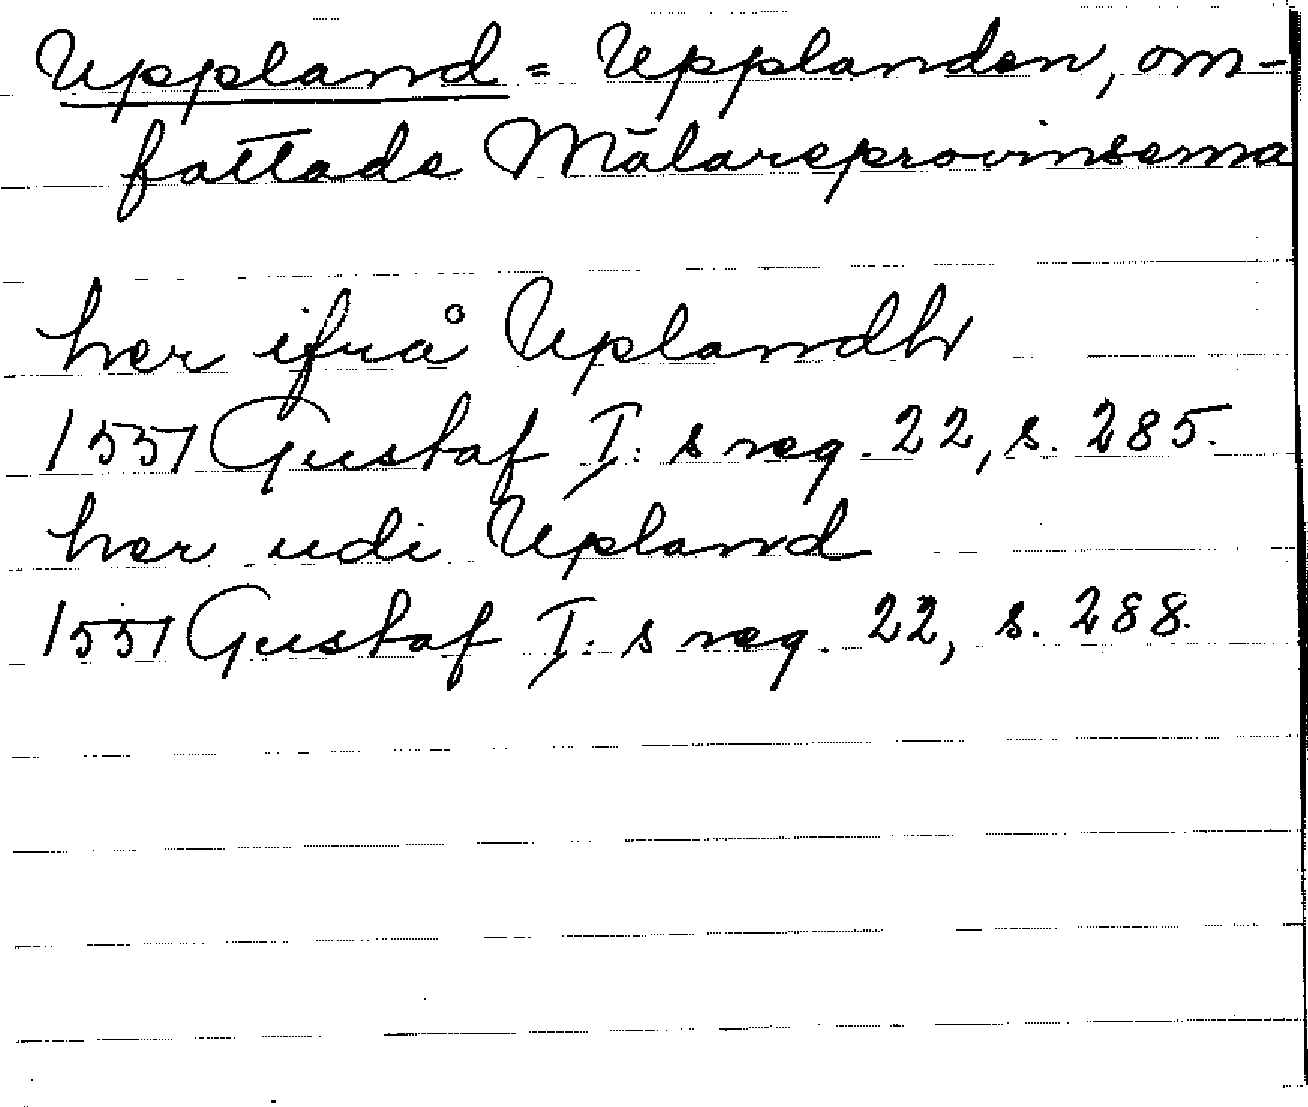 Uppland = Upplanden, om-
fattade Mälareprovinserna
her ifrå Uplandh
1551 Gustaf I:s reg. 22, s. 285.
her udi Upland
1551 Gustaf I:s reg. 22, s. 288.